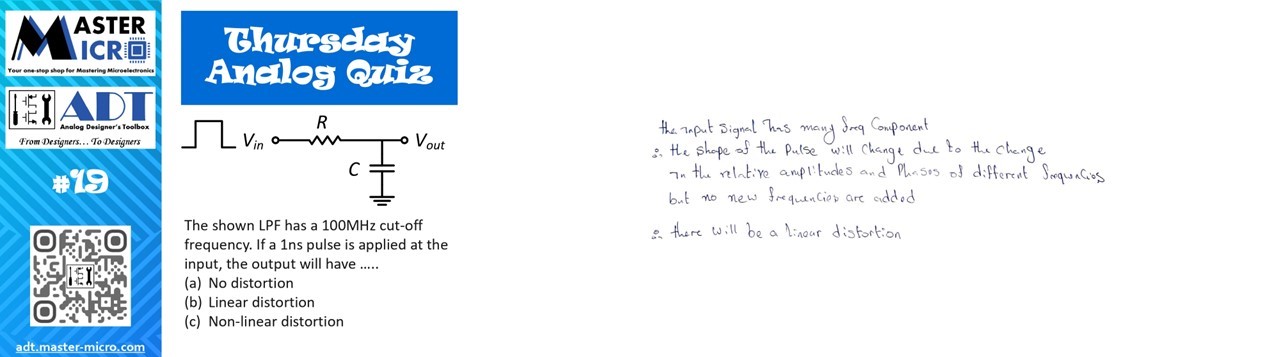 MASTER
MICRO
Your one-stop shop for Mastering Microelectronics
ADT
Analog Designer's Toolbox
From Designers... To Designers
#19
adt.master-micro.com
Thursday
Analog Quiz
R
Vin
Vout
C
The shown LPF has a 100MHz cut-off
frequency. If a 1ns pulse is applied at the
input, the output will have .....
(a) No distortion
(b) Linear distortion
(c) Non-linear distortion
the input signal has many freq component
∴ the shape of the pulse will change due to the change
in the relative amplitudes and phases of different frequencies
but no new frequencies are added
∴ there will be a linear distortion